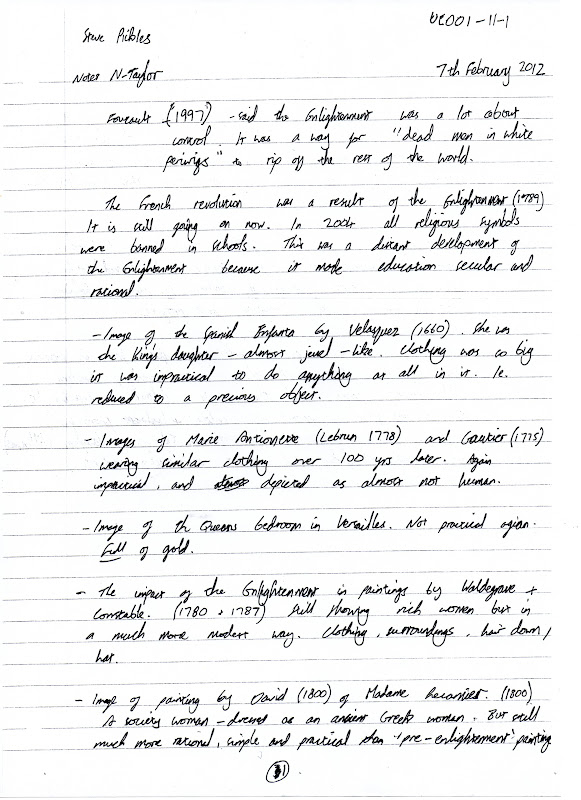 UC001-11-1
Steve Pickles
Notes N-Taylor
7th February 2012
Foucault (1997) - said the Enlightenment was a lot about
control. It was a way for "dead men in white
periwigs" to rip off the rest of the world.
The French revolution was a result of the Enlightenment (1789)
It is still going on now. In 2004 all religious symbols
were banned in schools. This was a distant development of
the Enlightenment because it made education secular and
rational.
- Image of the Spanish Enfanta by Velasquez (1660). She was
the King's daughter - almost jewel-like. Clothing was so big
it was impractical to do anything at all in it. Ie.
reduced to a precious object.
- Images of Marie Antionette (Lebrun 1778) and Gautier (1775)
wearing similar clothing over 100 yrs later. Again
impractical, and depicted as almost not human.
- Image of the Queens bedroom in Versailles. Not practical again.
Full of gold.
- The impact of the Enlightenment in paintings by Waldegrave +
Constable. (1780 > 1787) Still showing rich women but in
a much more modest way. Clothing, surroundings, hair down,
hat.
- Image of painting by David (1800) of Madame Recamier. (1800)
A society woman - dressed as an ancient Greek woman. But still
much more rational, simple and practical than 'pre-enlightenment' painting
1